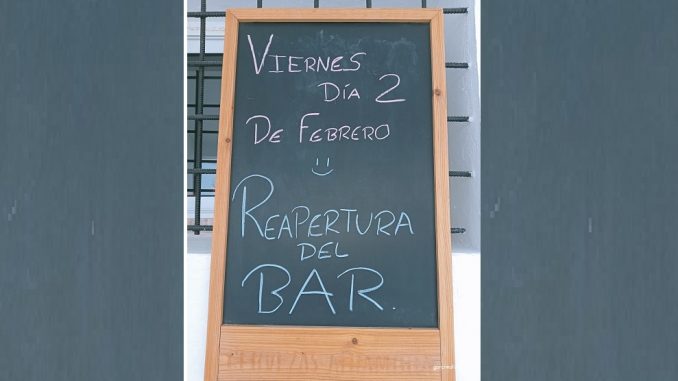 VIERNES
DÍA 2
DE FEBRERO
REAPERTURA
DEL
BAR.